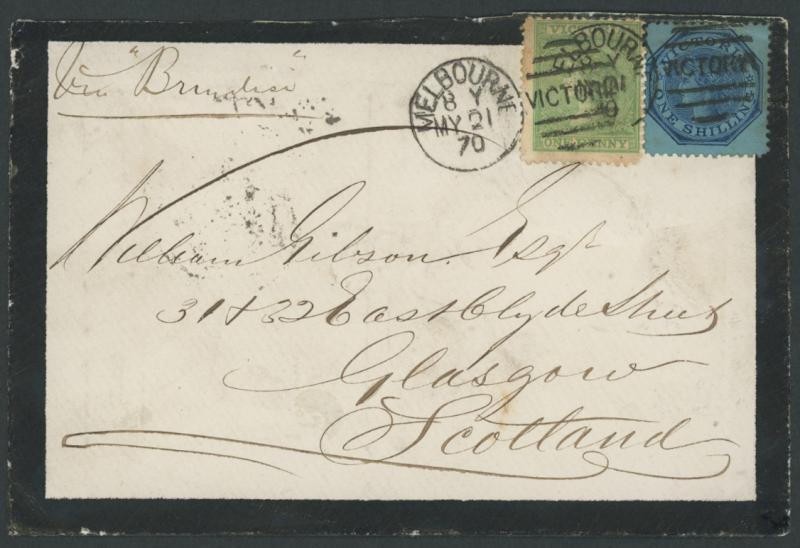 Via "Brindisi"
MELBOURNE
8 Y
MY 21
70
VICTORIA
ONE PENNY
MELBOURNE
VICTORIA
VICTORIA
ONE SHILLING
VICTORIA
William Gibson Esqr
31 & 32 East Clyde Street
Glasgow
Scotland